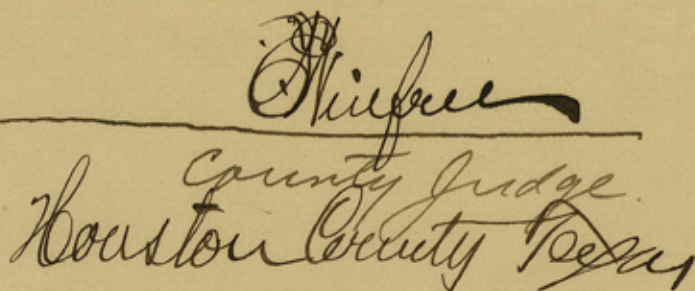 Winfree
County Judge.
Houston County Texas